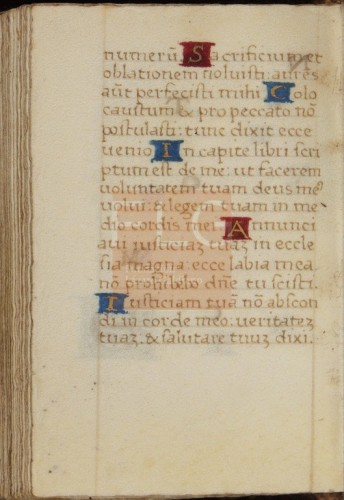 numerū. Sacrificium et
oblationem noluisti: aures
aūt perfecisti mihi Colo
caustum & pro peccato nō
postulasti: tunc dixit ecce
uenio In capite libri scri
ptum est de me: ut facerem
uoluntatem tuam deus meꝰ
uolui: & legem tuam in me
dio cordis mei. Annunci
aui iusticiaꝫ tuaꝫ in eccle
sia magna: ecce labia mea
nō prohibebo dn̄e tu scisti.
Iusticiam tuā nō abscon
di in corde meo: ueritateꝫ
tuaꝫ. & salutare tuuꝫ dixi.